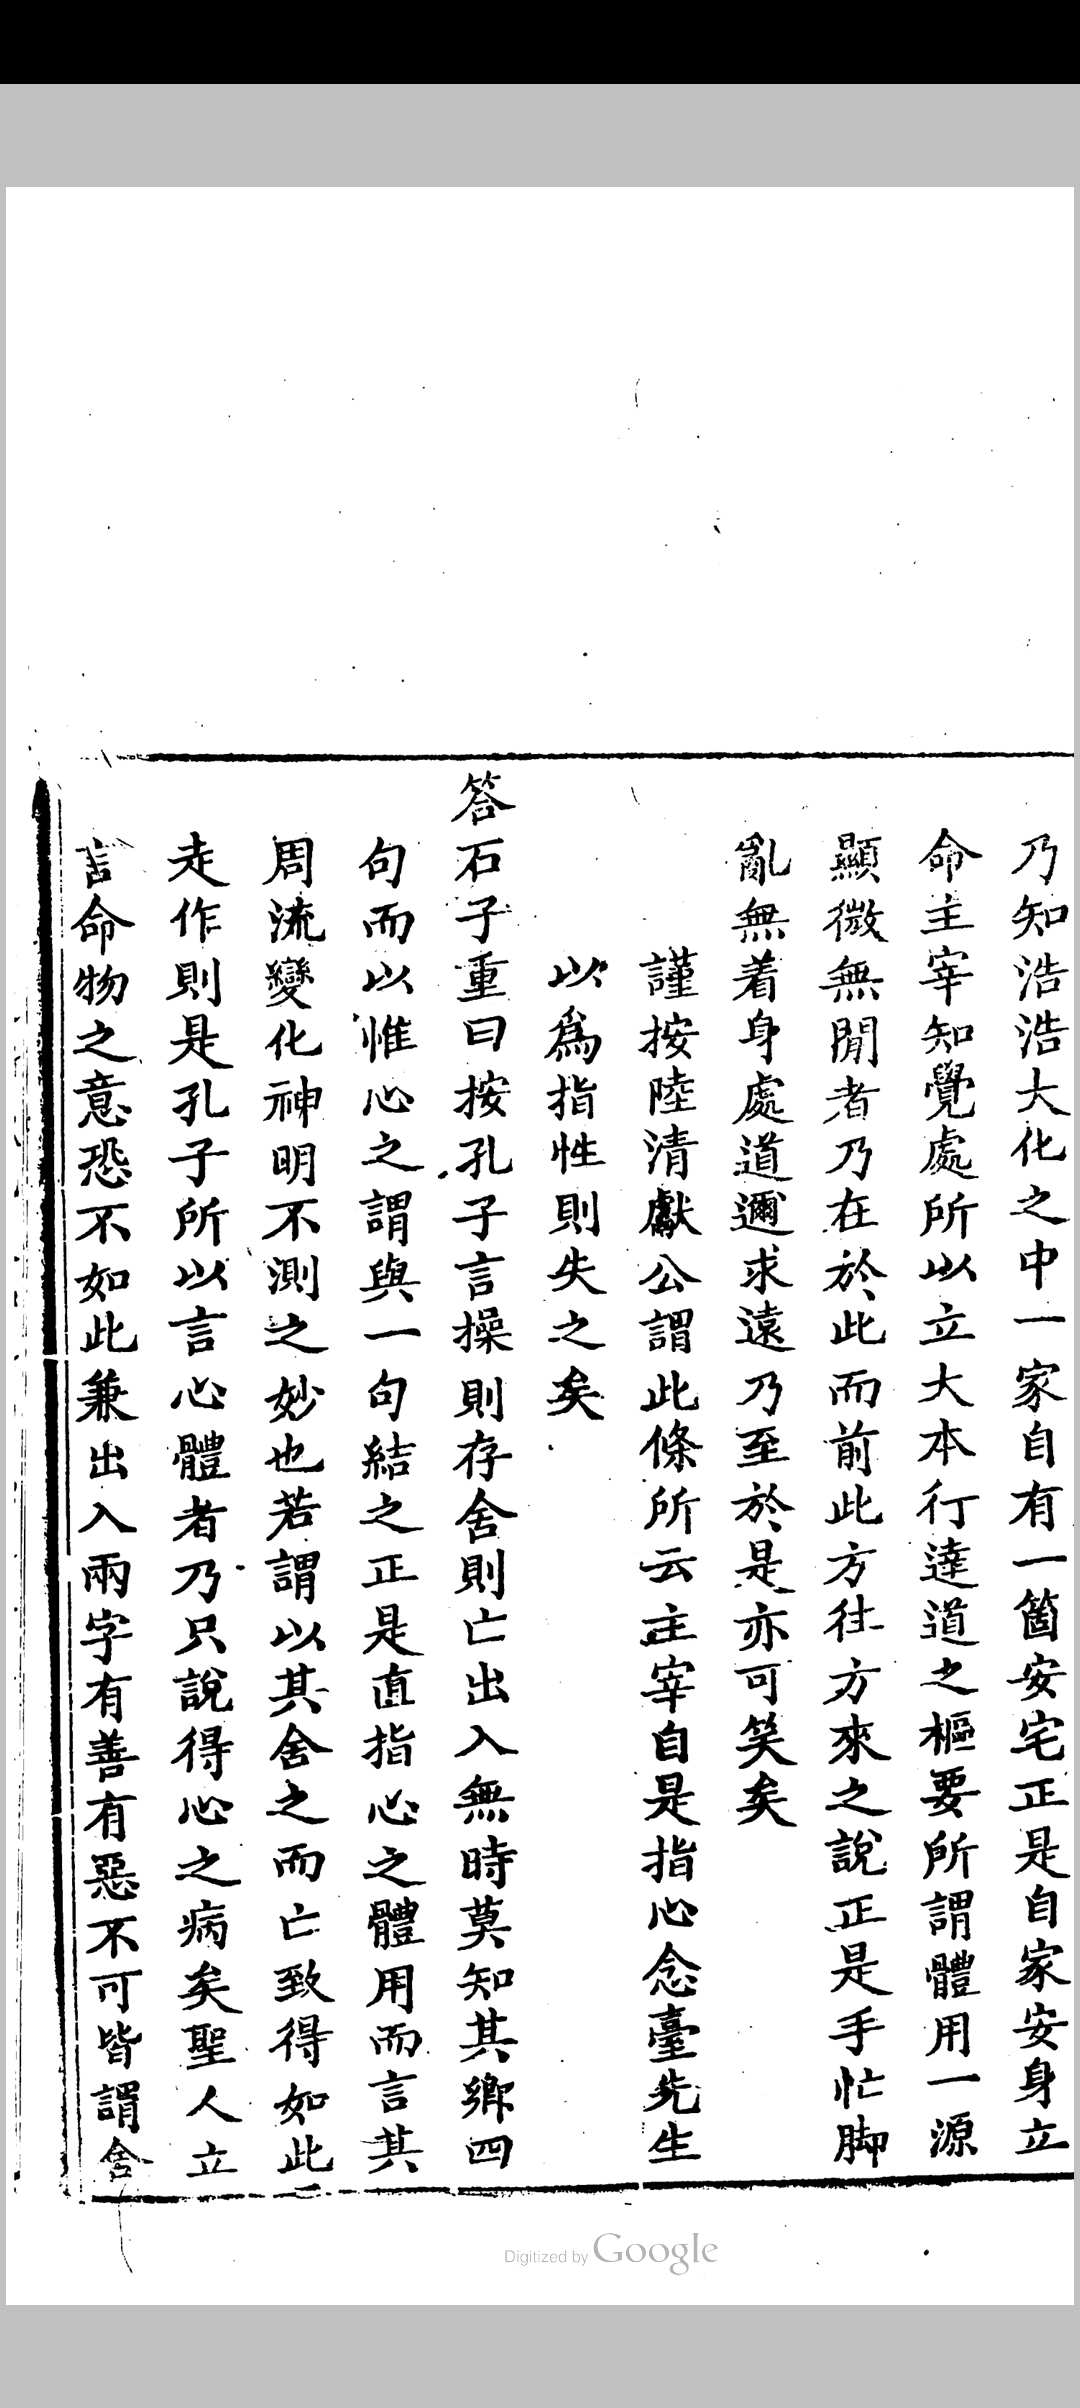 乃知浩浩大化之中一家自有一箇安宅正是自家安身立
命主宰知覺處所以立大本行達道之樞要所謂體用一源
顯微無閒者乃在於此而前此方徃方來之說正是手忙脚
亂無着身處道邇求遠乃至於是亦可笑矣
謹按陸清獻公謂此條所云主宰自是指心念臺先生
以爲指性則失之矣
答石子重曰按孔子言操則存舍則亡出入無時莫知其鄉四
句而以惟心之謂與一句結之正是直指心之體用而言其
周流變化神明不測之妙也若謂以其舍之而亡致得如此
走作則是孔子所以言心體者乃只說得心之病矣聖人立
言命物之意恐不如此兼出入兩字有善有惡不可皆謂舍
Digitized by Google